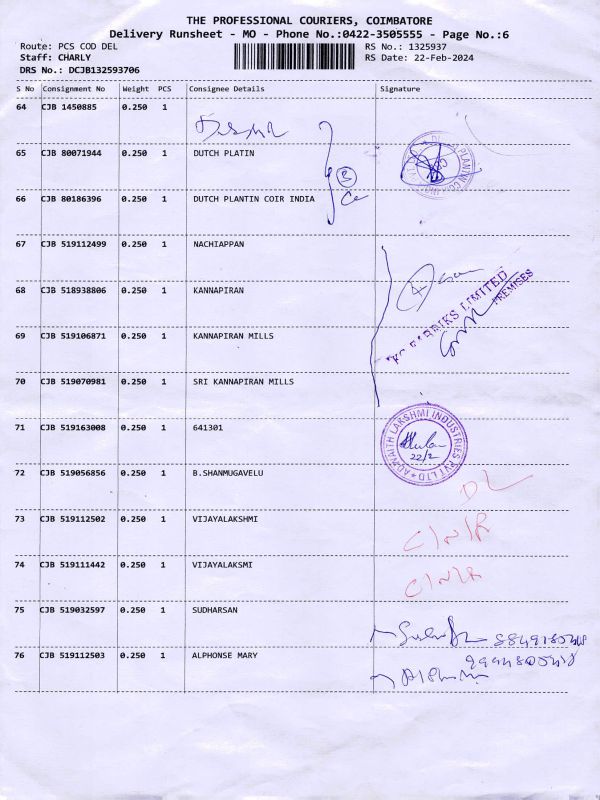 THE PROFESSIONAL COURIERS, COIMBATORE
Delivery Runsheet - MO - Phone No.:0422-3505555 - Page No.:6
Route: PCS COD DEL
RS No.: 1325937
Staff: CHARLY
RS Date: 22-Feb-2024
DRS No.: DCJB132593706
S No Consignment No Weight PCS Consignee Details Signature
64 CJB 1450885 0.250 1
65 CJB 80071944 0.250 1 DUTCH PLATIN
66 CJB 80186396 0.250 1 DUTCH PLANTIN COIR INDIA
67 CJB 519112499 0.250 1 NACHIAPPAN
68 CJB 518938806 0.250 1 KANNAPIRAN
LIMITED
PREMISES
69 CJB 519106871 0.250 1 KANNAPIRAN MILLS
70 CJB 519070981 0.250 1 SRI KANNAPIRAN MILLS
71 CJB 519163008 0.250 1 641301
ADWAITH LAKSHMI INDUSTRIES PVT LTD
22/2
72 CJB 519056856 0.250 1 B.SHANMUGAVELU
DL
73 CJB 519112502 0.250 1 VIJAYALAKSHMI
C/N/R
74 CJB 519111442 0.250 1 VIJAYALAKSMI
C/N/R
75 CJB 519032597 0.250 1 SUDHARSAN
76 CJB 519112503 0.250 1 ALPHONSE MARY